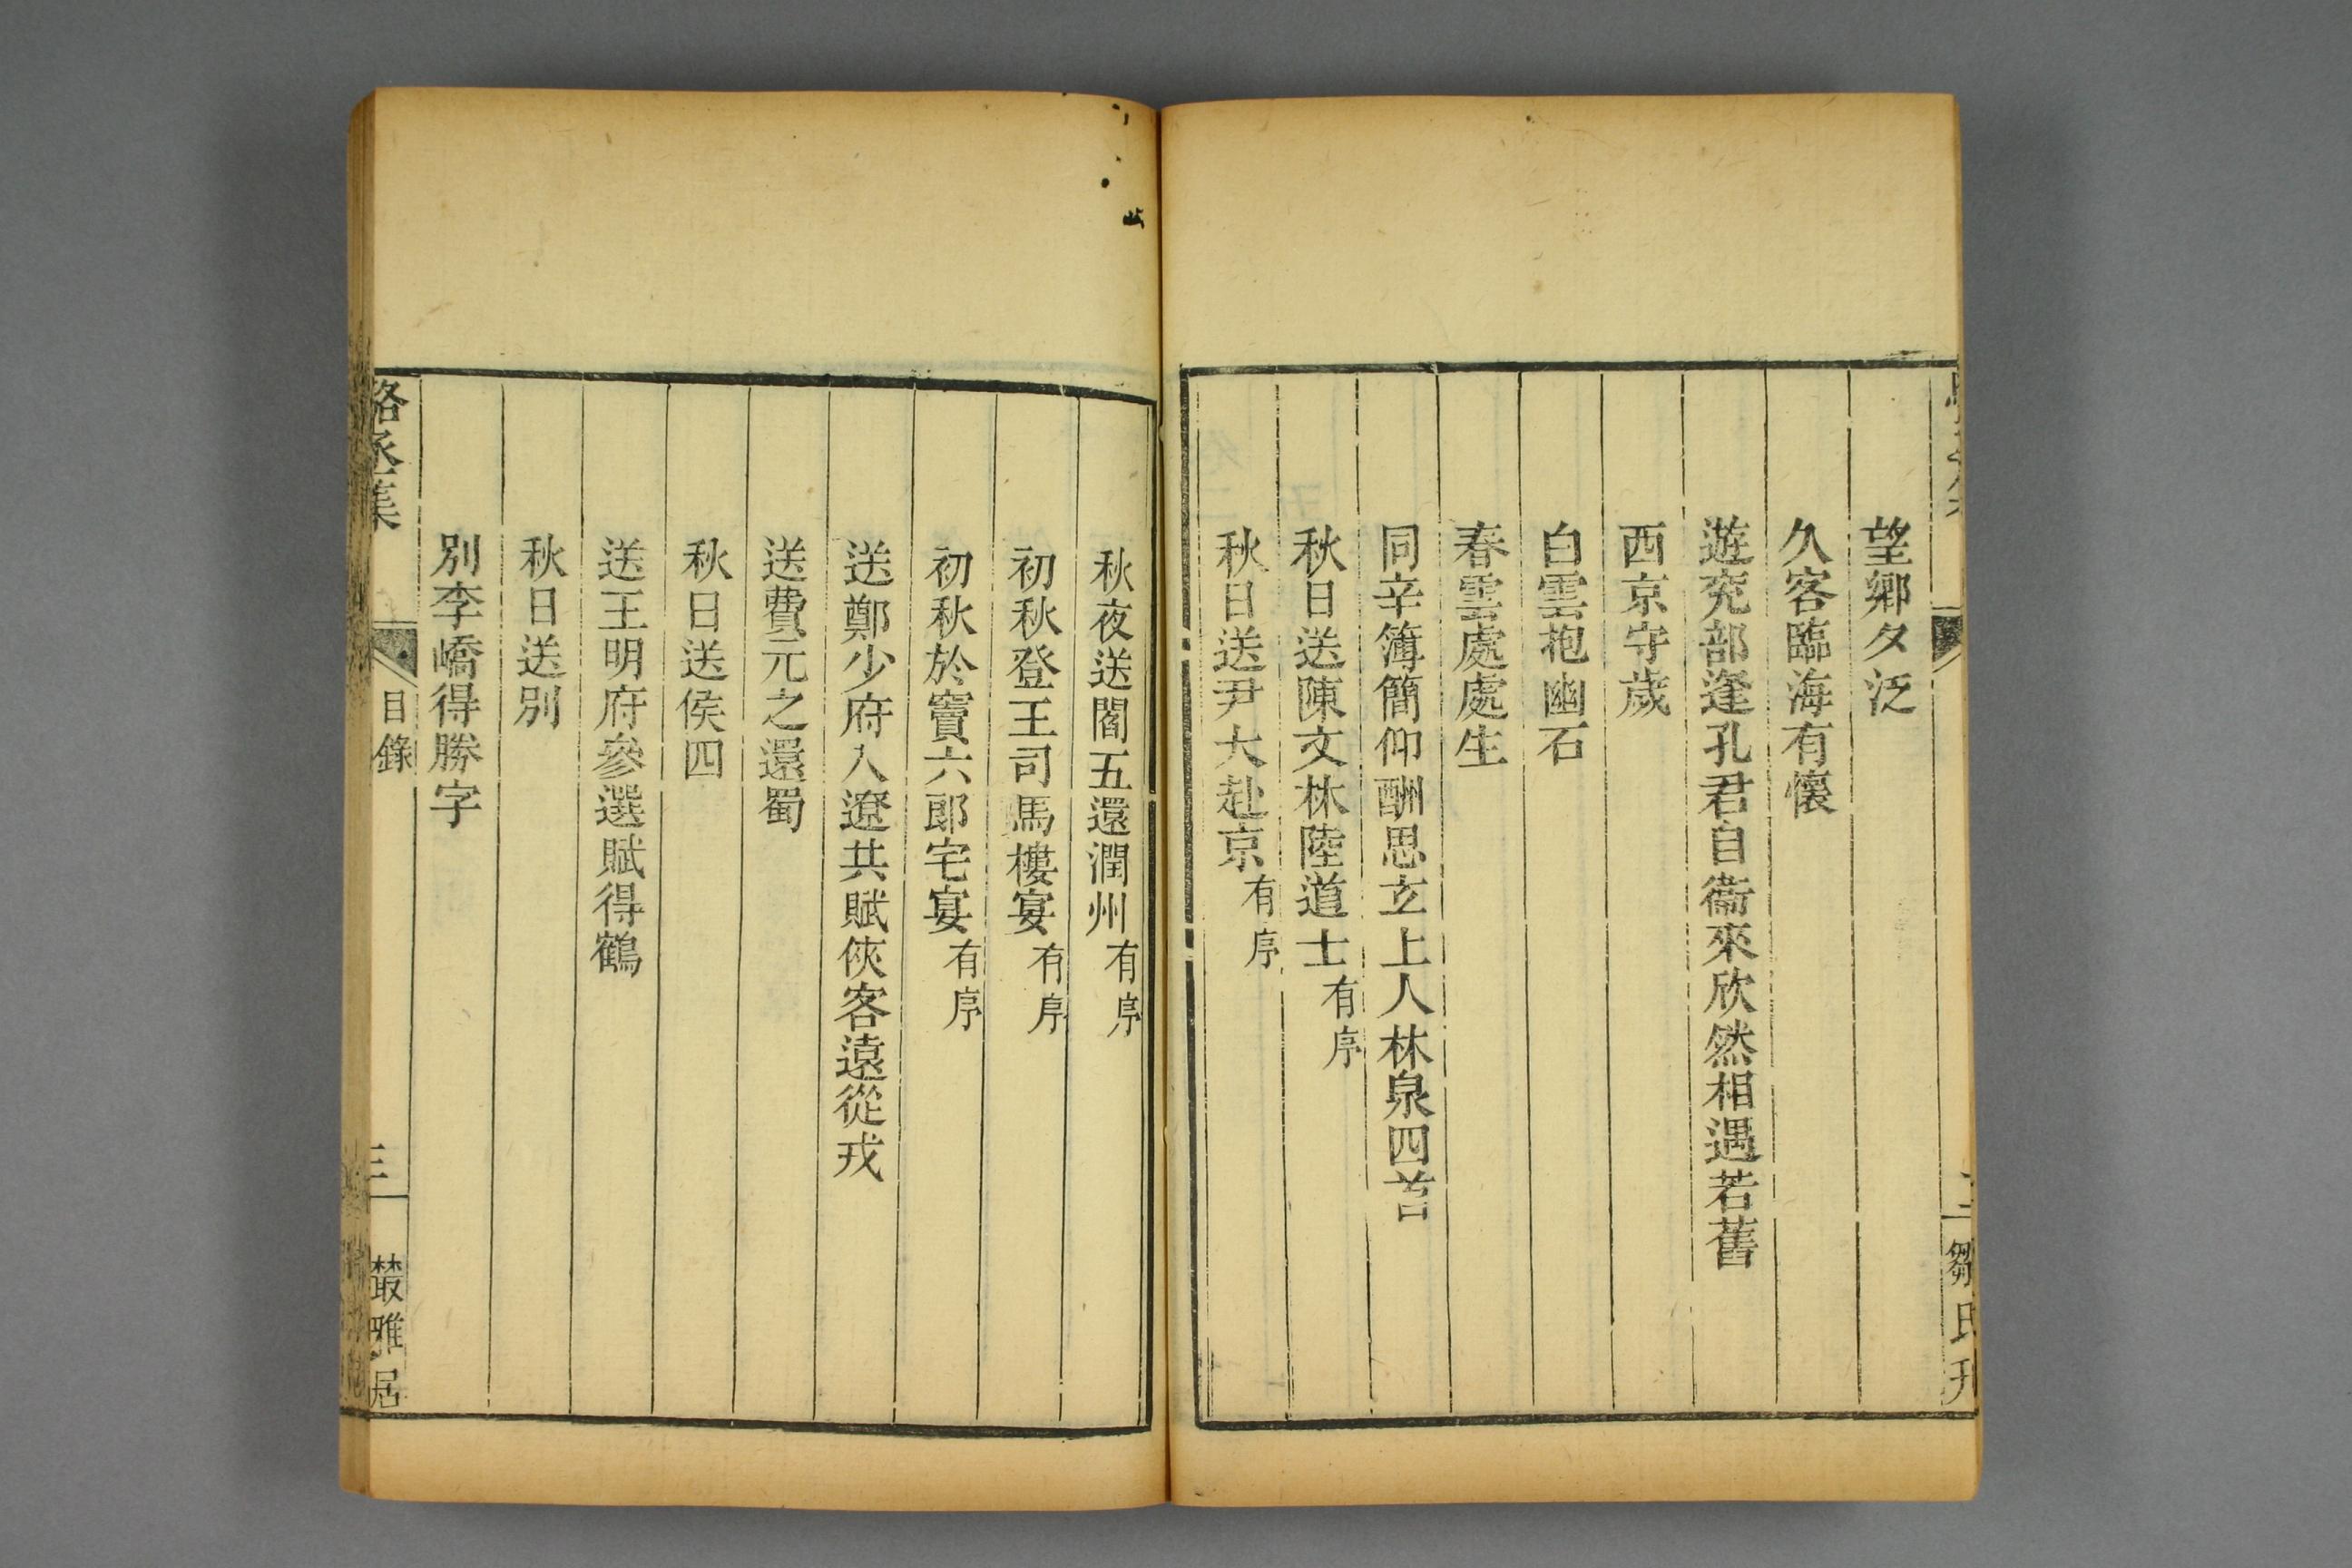 望鄉夕泛
久客臨海有懷
遊兖部逢孔君自衞來欣然相遇若舊
西京守歲
白雲抱幽石
春雲處處生
同辛簿簡仰酬思玄上人林泉四首
秋日送陳文林陸道士有序
秋日送尹大赴京有序
秋夜送閻五還潤州有序
初秋登王司馬樓宴有序
初秋於竇六郎宅宴有序
送鄭少府入遼共賦俠客遠從戎
送費元之還蜀
秋日送侯四
送王明府參選賦得鶴
秋日送別
別李嶠得勝字
駱丞集 目錄 三 叢雅居
鄒氏